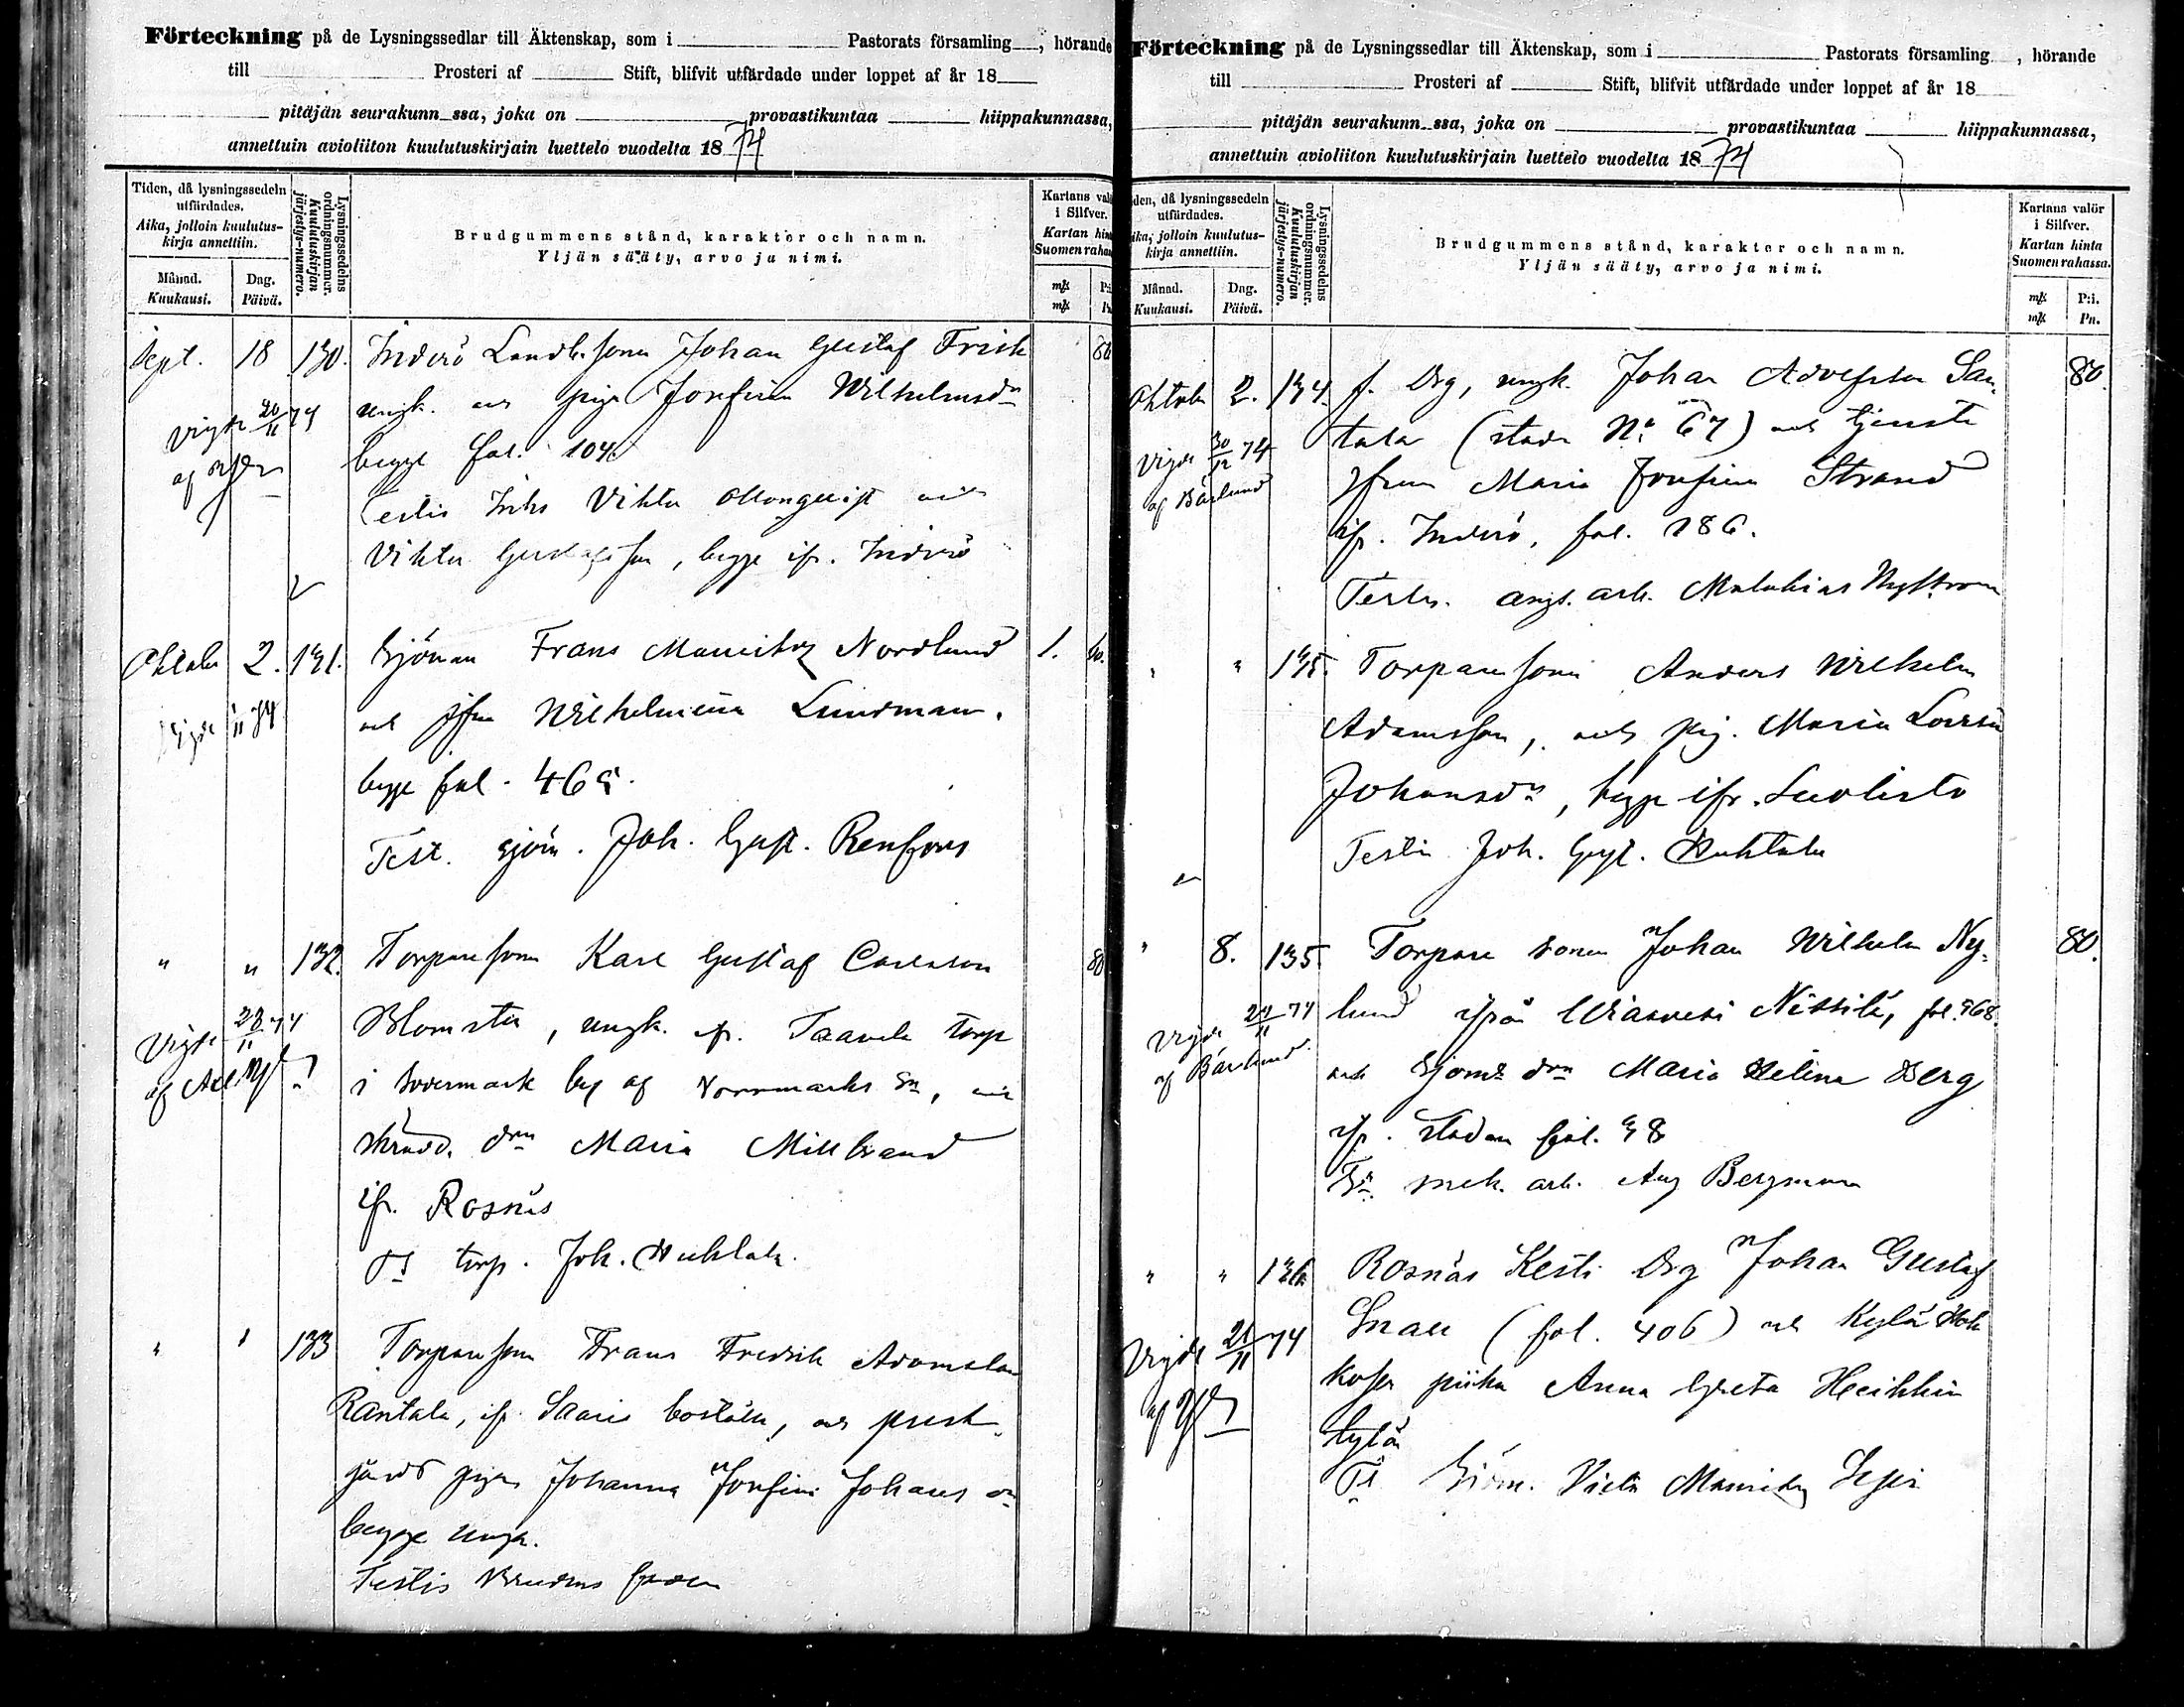 Förteckning på de Lysningssedlar till Äktenskap, som i Pastorats församling , hörande
till Prosteri af Stift, blifvit utfärdade under loppet af år 18
pitäjän seurakunn ssa, joka on provastikuntaa hiippakunnassa,
annettuin avioliiton kuulutuskirjain luettelo vuodelta 1874
Tiden, då lysningssedeln
utfärdades.
Aika, jolloin kuulutus-
kirja annettiin.
Månad.
Kuukausi.
Dag.
Päivä.
Lysningssedelns
ordningsnummer.
Kuulutuskirjan
järjestys-numero.
Brudgummens stånd, karakter och namn.
Yljän sääty, arvo ja nimi.
Kartans val
i Silfver.
Kartan hin
Suomen raha
Sept. 18 130. Inderö Landb. sonen Johan Gustaf Frisk
ungk. och piga Josefina Wilhelmsdr
begge fol. 104
Testis Viktor och
Viktor Gustafsson, begge ifr. Inderö
Vigde 20/11 74
Oktober 2. 131. Sjöman Frans Mauritz Nordlund 1. 60.
och jfru Wilhelmina Lundman.
begge fol. 465.
Test. sjöm. Joh. Gust. Renfors
" " 132. Torparesonen Karl Gustaf Carlsson 80
Blomster, ungk. ifr. Taavela torp
i Södermark by af Norrmarks Sn, och
skrädd. drn Maria Millbrand
ifr. Rosnäs
Ts torp. Joh. Huhtala.
Vigde 23/11 74
" " 133 Torparesonen Frans Fredrik Adamsson
Rantala, ifr. Saaris boställe, och prest-
gårds pigan Johanna Josefina Johans dr
begge ungk.
Testis Brudens fader
Förteckning på de Lysningssedlar till Äktenskap, som i Pastorats församling , hörande
till Prosteri af Stift, blifvit utfärdade under loppet af år 18
pitäjän seurakunn ssa, joka on provastikuntaa hiippakunnassa,
annettuin avioliiton kuulutuskirjain luettelo vuodelta 1874
den, då lysningssedeln
utfärdades.
ika, jolloin kuulutus-
kirja annettiin.
Månad.
Kuukausi.
Dag.
Päivä.
Lysningssedelns
ordningsnummer.
Kuulutuskirjan
järjestys-numero.
Brudgummens stånd, karakter och namn.
Yljän sääty, arvo ja nimi.
Kartans valör
i Silfver.
Kartan hinta
Suomen rahassa.
mk P:i.
mk Pn.
Oktober 2. 134. f. Drg, ungk. Johan Adolfsson San- 80.
tala (staden No 67) och tjenste
jfrun Maria Josefina Strand
ifr. Inderö, fol. 186.
Testes. ångs. arb. Malakias Nyström
Vigde 30/12 74
af Bärlund
" " 135. Torparesonen Anders Wilhelm
Adamsson, och pig. Maria Lovisa
Johansdr, begge ifr. Luvlisto
Testis Joh. Gust. Huhtala
" 8. 135. Torpare sonen Johan Wilhelm Ny- 80.
lund ifrån Wiasvesi Nissilä, fol. 368.
och Sjöms drn Maria Helina Berg
ifr. staden fol. 38
Ts mek. arb. Aug Bergman
Vigde 24/11 74
af Bärlund
" " 136 Rosnäs Kesti Drg Johan Gustaf
Snäll (fol. 406) och Kylä
piika Anna Greta Heikkin
tytär
Ts Sjöm. Victor Mauritz
Vigde 21/11 74